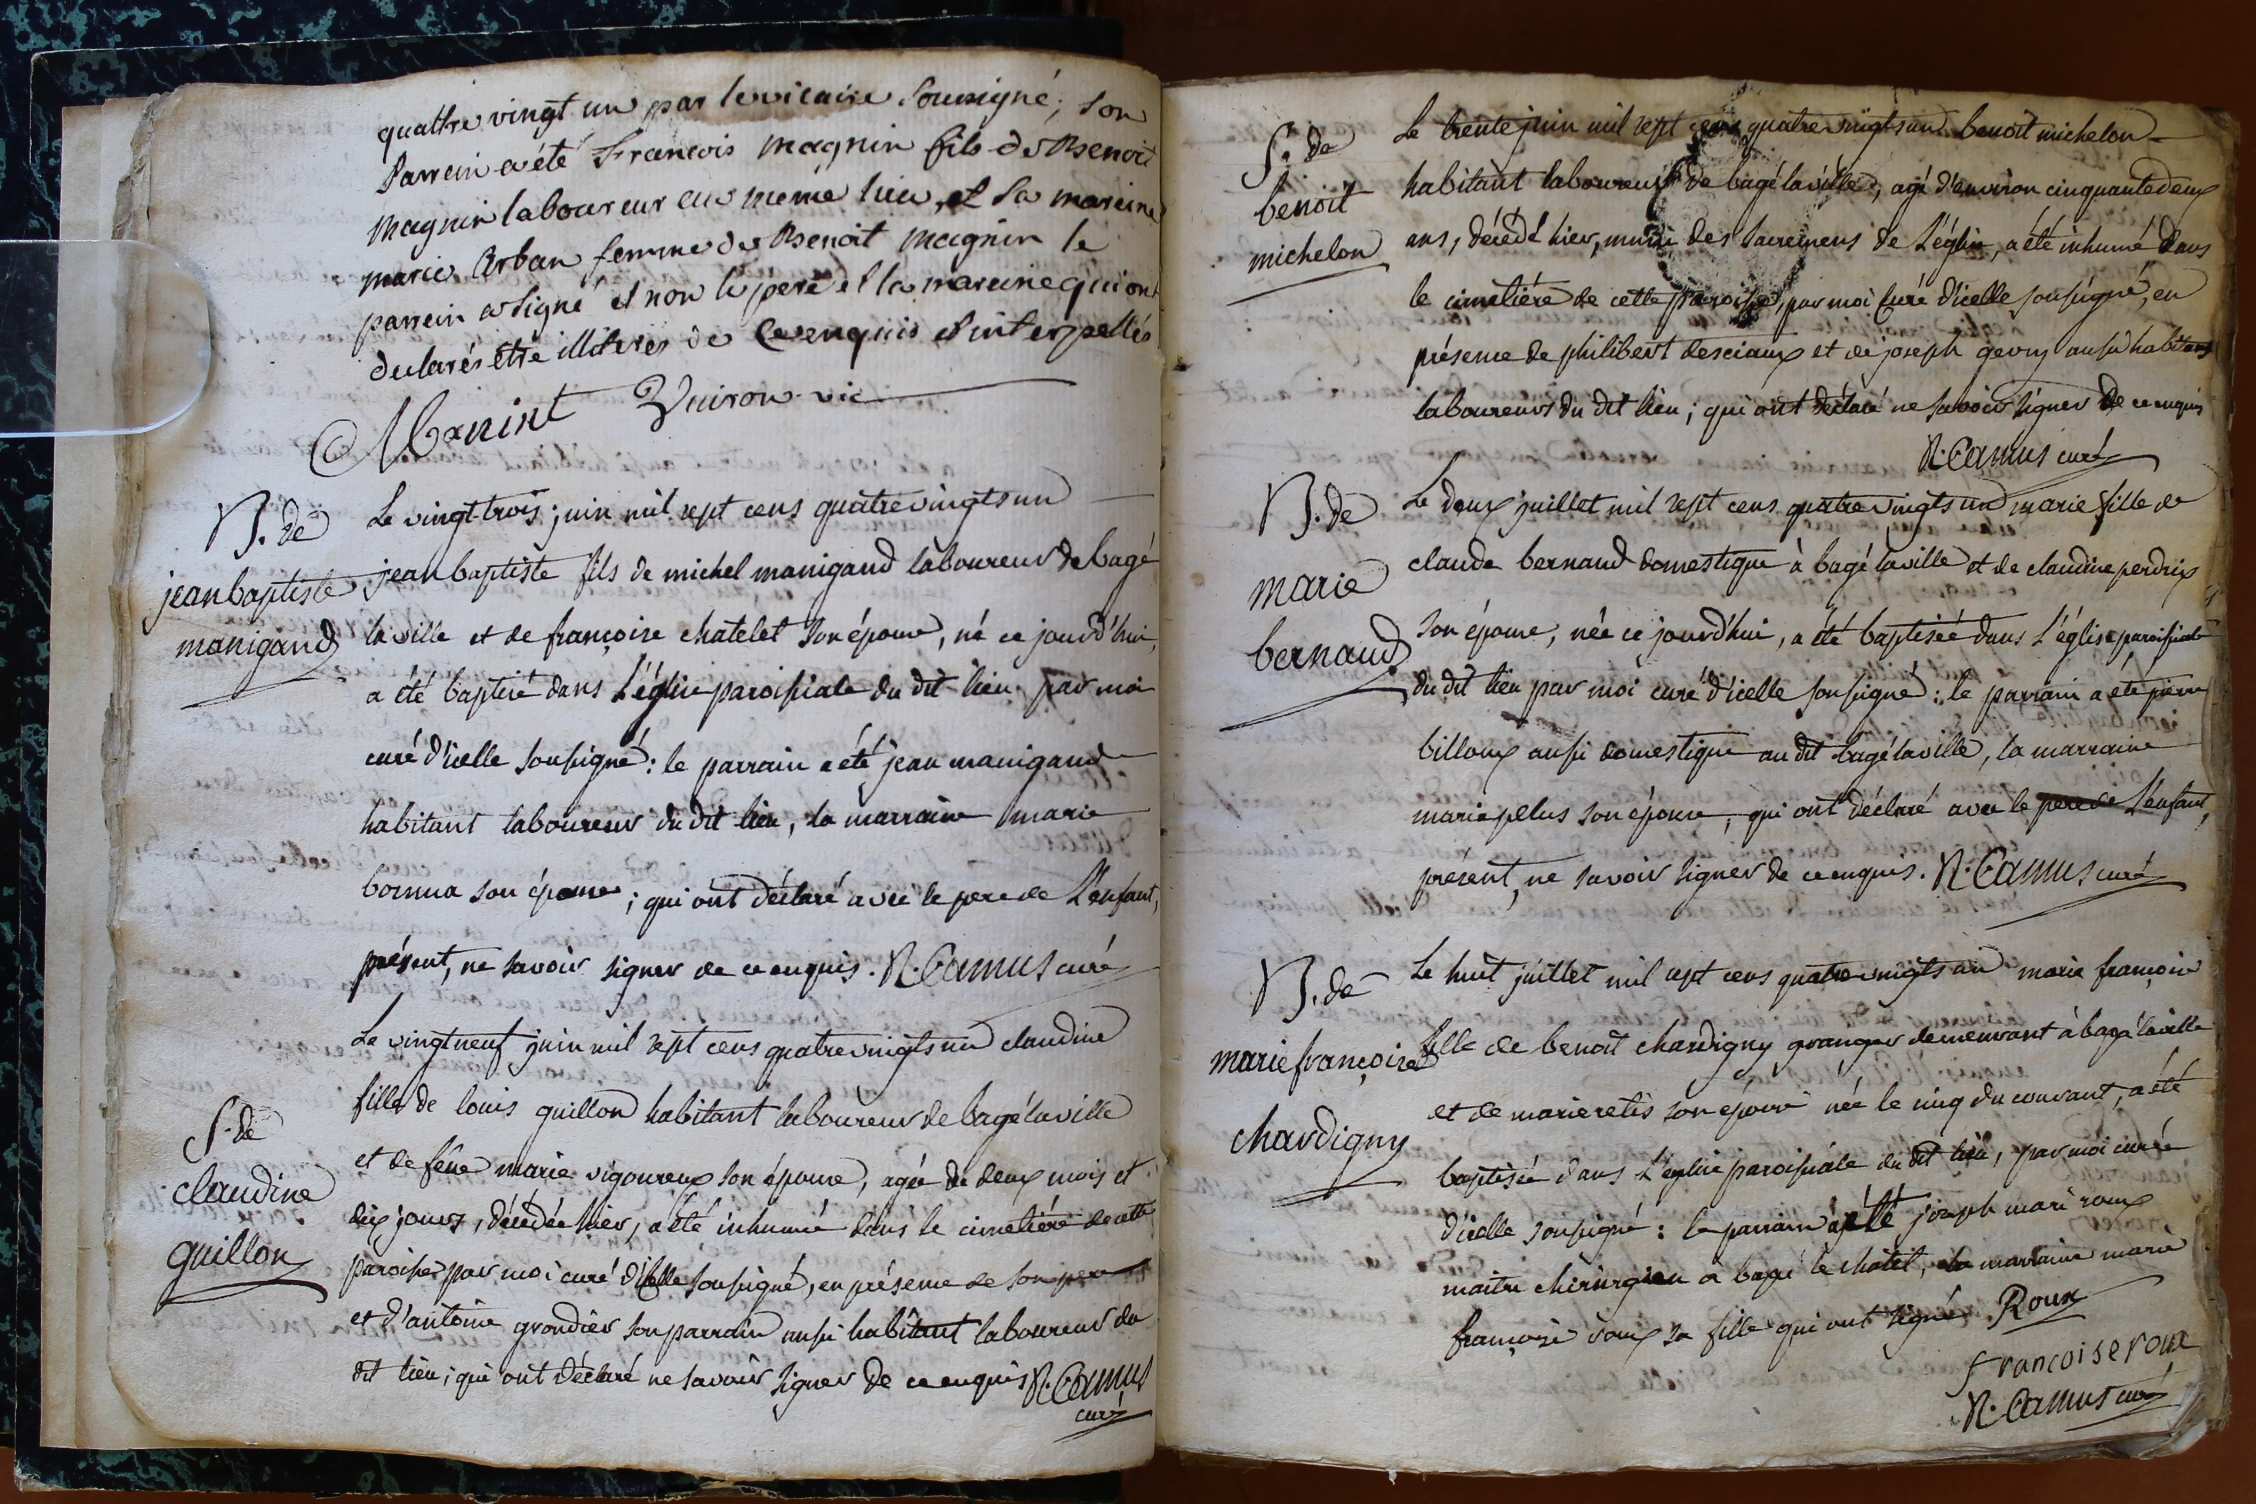 quattre vingt un par le vicaire soussigné, son
Parrein a été Francois magnin fils de Benoit
magnin laboureur au méme lieu, et sa mareine
marie Arban femme de Benoit magnin le
parrein a signé et non le pere et la mareine qui ont
declarés étre illiterés de ce enquis et interpellés
vic
N. de
jean baptiste
manigand
Le vingt trois juin mil sept cens quatre vingts un
jean baptiste fils de michel manigand laboureur de bagé
la ville et de françoise chatelet son épouse, né ce jourd'hui,
a été baptisé dans L'église paroissiale du dit lieu par moi
curé d'icelle soussigné : le parrain a été jean manigand
habitant laboureur du dit lieu, la marraine marie
son épouse ; qui ont déclaré avec le pere de L'enfant,
présent, ne savoir signer de ce enquis. N. Camus curé
S. de
claudine
guillon
Le vingt neuf juin mil sept cens quatre vingts un claudine
fille de louis guillon habitant laboureur de bagé la ville
et de feüe marie vigoureux son épouse, agée de deux mois et
dix jours, décédée hier, a été inhumée dans le cimetiére de cette
paroisse par moi curé d'icelle soussigné, en présence de son pere
et d'antoine grondier son parrain aussi habitant laboureur du
dit lieu ; qui ont déclaré ne savoir signer de ce enquis N. Camus
curé
S. de
benoit
michelon
Le trente juin mil sept cens quatre vingts un benoit michelon
habitant laboureur de bagé la ville, agé d'environ cinquante deux
ans, décédé hier, muni des sacremens de L'église, a été inhumé dans
le cimetiére de cette paroisse, par moi curé d'icelle soussigné, en
présence de philibert desciaux et de joseph gevry aussi habitans
laboureurs du dit lieu ; qui ont déclaré ne savoir signer de ce enquis
N. Camus curé
N. de
marie
bernaud
Le deux juillet mil sept cens quatre vingts un marie fille de
claude bernaud domestique à bagé la ville et de claudine perdrix
son épouse, née ce jourd'hui, a été baptisée dans L'église paroissiale
du dit lieu par moi curé d'icelle soussigné : le parrain a été pierre
billoux aussi domestique au dit bagé la ville, la marraine
marie pelus son épouse, qui ont déclaré avec le pere de L'enfant,
présent, ne savoir signer de ce enquis. N. Camus curé
N. de
marie françoise
chardigny
Le huit juillet mil sept cens quatre vingts un marie françoise
fille de benoit chardigny granger demeurant à bagé la ville
et de marie retis son épouse née le cinq du courant, a été
baptisée dans L'église paroissiale du dit lieu, par moi curé
d'icelle soussigné : le parrain a été joseph marie roux
maitre chirurgien à bagé le châtel, la marraine marie
françoise roux sa fille qui ont signé Roux
francoise roux
N. Camus curé